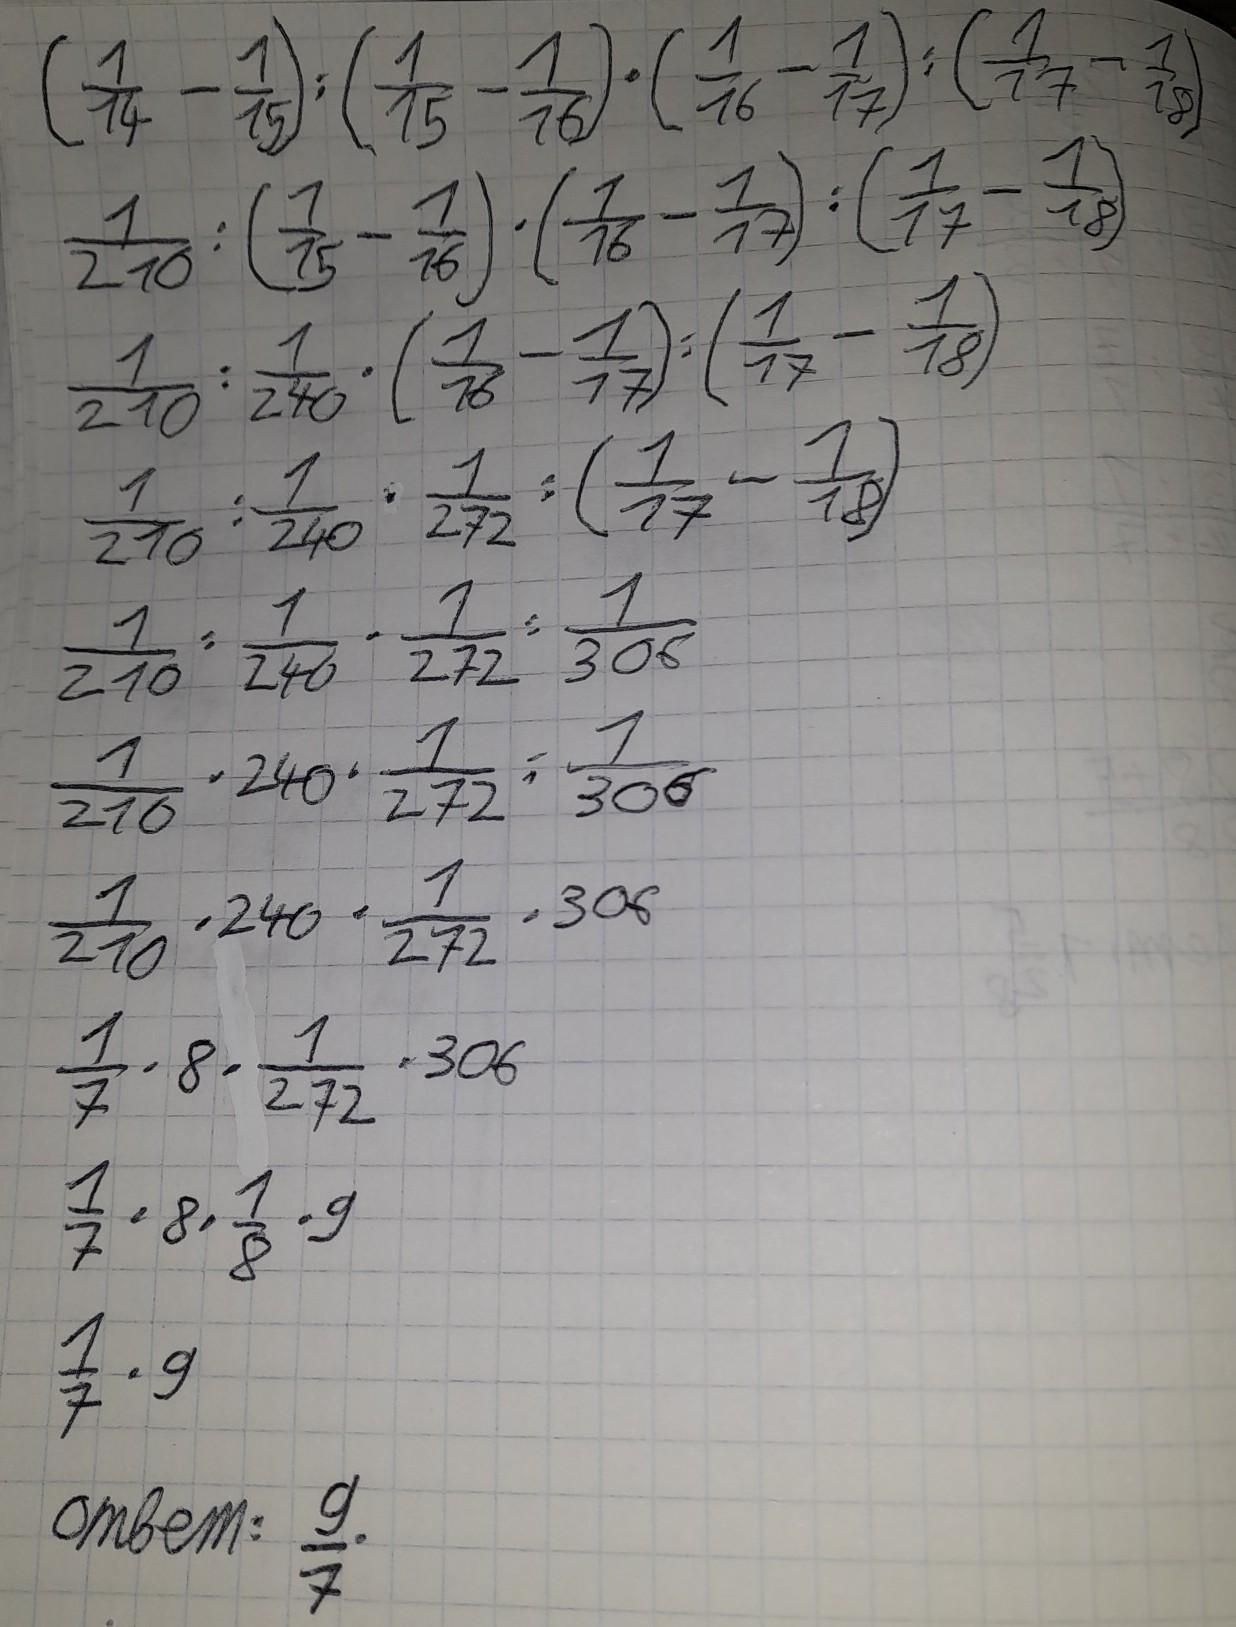 (1/14 - 1/15) : (1/15 - 1/16) · (1/16 - 1/17) : (1/17 - 1/18)
1/210 : (1/15 - 1/16) · (1/16 - 1/17) : (1/17 - 1/18)
1/210 : 1/240 · (1/16 - 1/17) : (1/17 - 1/18)
1/210 : 1/240 · 1/272 : (1/17 - 1/18)
1/210 : 1/240 · 1/272 : 1/306
1/210 · 240 · 1/272 : 1/306
1/210 · 240 · 1/272 · 306
1/7 · 8 · 1/272 · 306
1/7 · 8 · 1/8 · 9
1/7 · 9
ответ: 9/7.